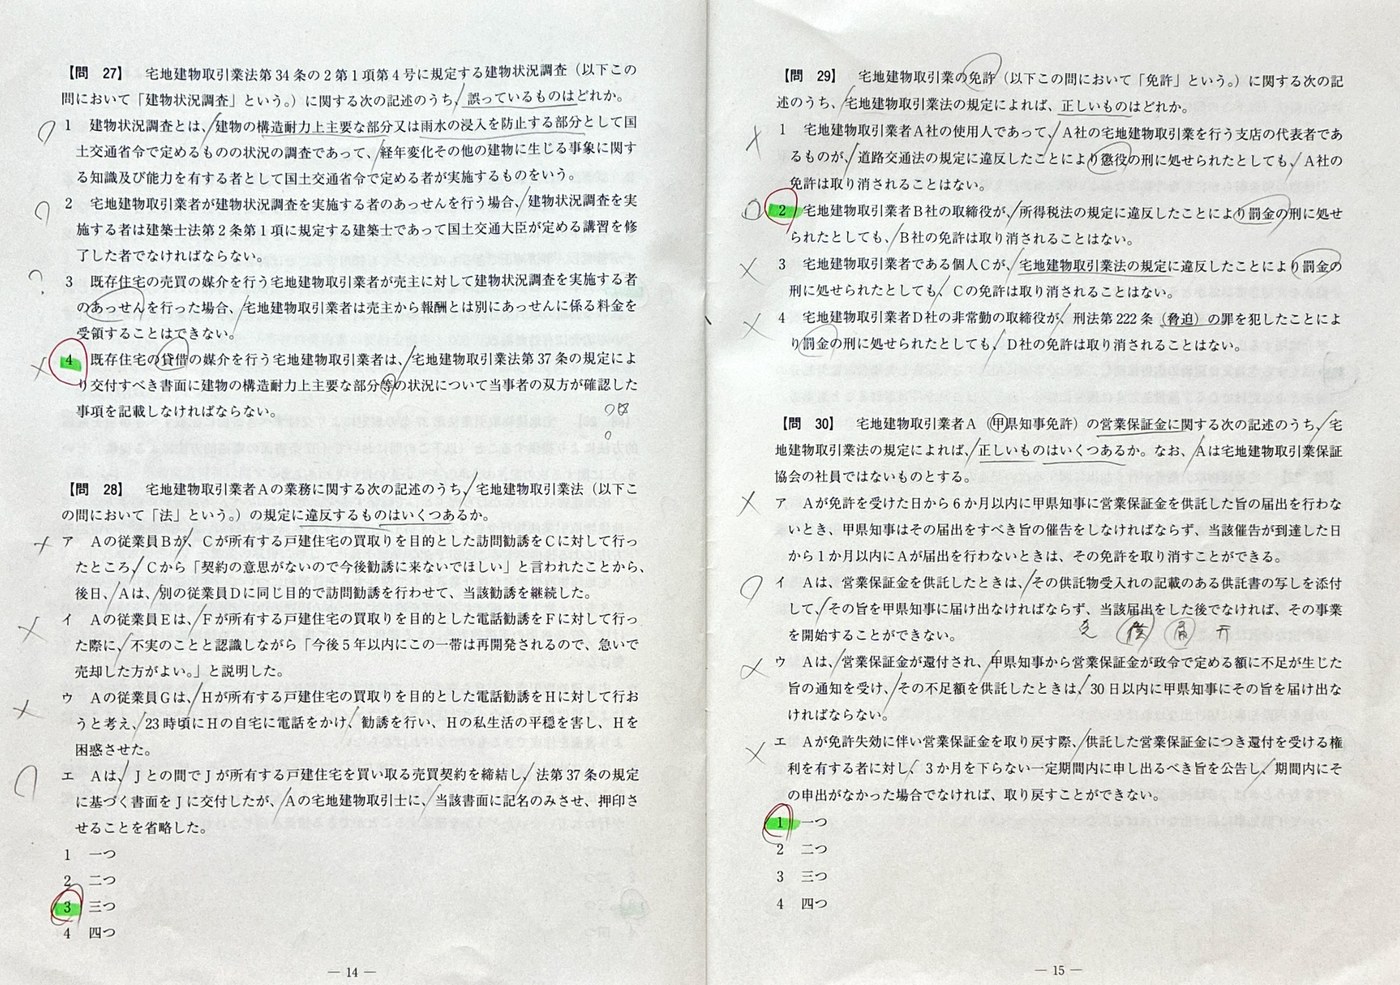 【問　27】　宅地建物取引業法第34条の2第1項第4号に規定する建物状況調査（以下この
問において「建物状況調査」という。）に関する次の記述のうち、誤っているものはどれか。
1　建物状況調査とは、建物の構造耐力上主要な部分又は雨水の浸入を防止する部分として国
土交通省令で定めるものの状況の調査であって、経年変化その他の建物に生じる事象に関す
る知識及び能力を有する者として国土交通省令で定める者が実施するものをいう。
2　宅地建物取引業者が建物状況調査を実施する者のあっせんを行う場合、建物状況調査を実
施する者は建築士法第2条第1項に規定する建築士であって国土交通大臣が定める講習を修
了した者でなければならない。
3　既存住宅の売買の媒介を行う宅地建物取引業者が売主に対して建物状況調査を実施する者
のあっせんを行った場合、宅地建物取引業者は売主から報酬とは別にあっせんに係る料金を
受領することはできない。
4　既存住宅の貸借の媒介を行う宅地建物取引業者は、宅地建物取引業法第37条の規定によ
り交付すべき書面に建物の構造耐力上主要な部分等の状況について当事者の双方が確認した
事項を記載しなければならない。
【問　28】　宅地建物取引業者Aの業務に関する次の記述のうち、宅地建物取引業法（以下こ
の問において「法」という。）の規定に違反するものはいくつあるか。
ア　Aの従業員Bが、Cが所有する戸建住宅の買取りを目的とした訪問勧誘をCに対して行っ
たところ、Cから「契約の意思がないので今後勧誘に来ないでほしい」と言われたことから、
後日、Aは、別の従業員Dに同じ目的で訪問勧誘を行わせて、当該勧誘を継続した。
イ　Aの従業員Eは、Fが所有する戸建住宅の買取りを目的とした電話勧誘をFに対して行っ
た際に、不実のことと認識しながら「今後5年以内にこの一帯は再開発されるので、急いで
売却した方がよい。」と説明した。
ウ　Aの従業員Gは、Hが所有する戸建住宅の買取りを目的とした電話勧誘をHに対して行お
うと考え、23時頃にHの自宅に電話をかけ、勧誘を行い、Hの私生活の平穏を害し、Hを
困惑させた。
エ　Aは、Jとの間でJが所有する戸建住宅を買い取る売買契約を締結し、法第37条の規定
に基づく書面をJに交付したが、Aの宅地建物取引士に、当該書面に記名のみさせ、押印さ
せることを省略した。
1　一つ
2　二つ
3　三つ
4　四つ
― 14 ―
【問　29】　宅地建物取引業の免許（以下この問において「免許」という。）に関する次の記
述のうち、宅地建物取引業法の規定によれば、正しいものはどれか。
1　宅地建物取引業者A社の使用人であって、A社の宅地建物取引業を行う支店の代表者であ
るものが、道路交通法の規定に違反したことにより懲役の刑に処せられたとしても、A社の
免許は取り消されることはない。
2　宅地建物取引業者B社の取締役が、所得税法の規定に違反したことにより罰金の刑に処せ
られたとしても、B社の免許は取り消されることはない。
3　宅地建物取引業者である個人Cが、宅地建物取引業法の規定に違反したことにより罰金の
刑に処せられたとしても、Cの免許は取り消されることはない。
4　宅地建物取引業者D社の非常勤の取締役が、刑法第222条（脅迫）の罪を犯したことによ
り罰金の刑に処せられたとしても、D社の免許は取り消されることはない。
【問　30】　宅地建物取引業者A（甲県知事免許）の営業保証金に関する次の記述のうち、宅
地建物取引業法の規定によれば、正しいものはいくつあるか。なお、Aは宅地建物取引業保証
協会の社員ではないものとする。
ア　Aが免許を受けた日から6か月以内に甲県知事に営業保証金を供託した旨の届出を行わな
いとき、甲県知事はその届出をすべき旨の催告をしなければならず、当該催告が到達した日
から1か月以内にAが届出を行わないときは、その免許を取り消すことができる。
イ　Aは、営業保証金を供託したときは、その供託物受入れの記載のある供託書の写しを添付
して、その旨を甲県知事に届け出なければならず、当該届出をした後でなければ、その事業
を開始することができない。
ウ　Aは、営業保証金が還付され、甲県知事から営業保証金が政令で定める額に不足が生じた
旨の通知を受け、その不足額を供託したときは、30日以内に甲県知事にその旨を届け出な
ければならない。
エ　Aが免許失効に伴い営業保証金を取り戻す際、供託した営業保証金につき還付を受ける権
利を有する者に対し、3か月を下らない一定期間内に申し出るべき旨を公告し、期間内にそ
の申出がなかった場合でなければ、取り戻すことができない。
1　一つ
2　二つ
3　三つ
4　四つ
― 15 ―